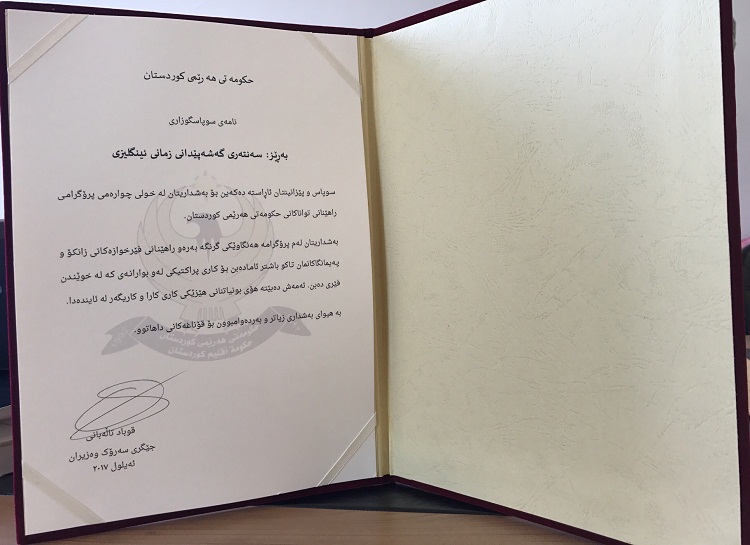 حکومەتی هەرێمی کوردستان
نامەی سوپاسگوزاری
بەڕێز: سەنتەری گەشەپێدانی زمانی ئینگلیزی
سوپاس و پێزانینتان ئاڕاستە دەکەین بۆ بەشداریتان لە خولی چوارەمی پرۆگرامی
راهێنانی تواناکانی حکومەتی هەرێمی کوردستان.
بەشداریتان لەم پرۆگرامە هەنگاوێکی گرنگە بەرەو راهێنانی فێرخوازەکانی زانکۆ و
پەیمانگاکانمان تاکو باشتر ئامادەبن بۆ کاری پراکتیکی لەو بوارانەی کە لە خوێندن
فێری دەبن. ئەمەش دەبێتە هۆی بونیاتنانی هێزێکی کاری کارا و کاریگەر لە ئایندەدا.
بە هیوای بەشداری زیاتر و بەردەوامبوون بۆ قۆناغەکانی داهاتوو.
حکومەتی هەرێمی کوردستان
حكومة اقليم كوردستان
قوباد تاڵەبانی
جێگری سەرۆک وەزیران
ئەیلول ٢٠١٧